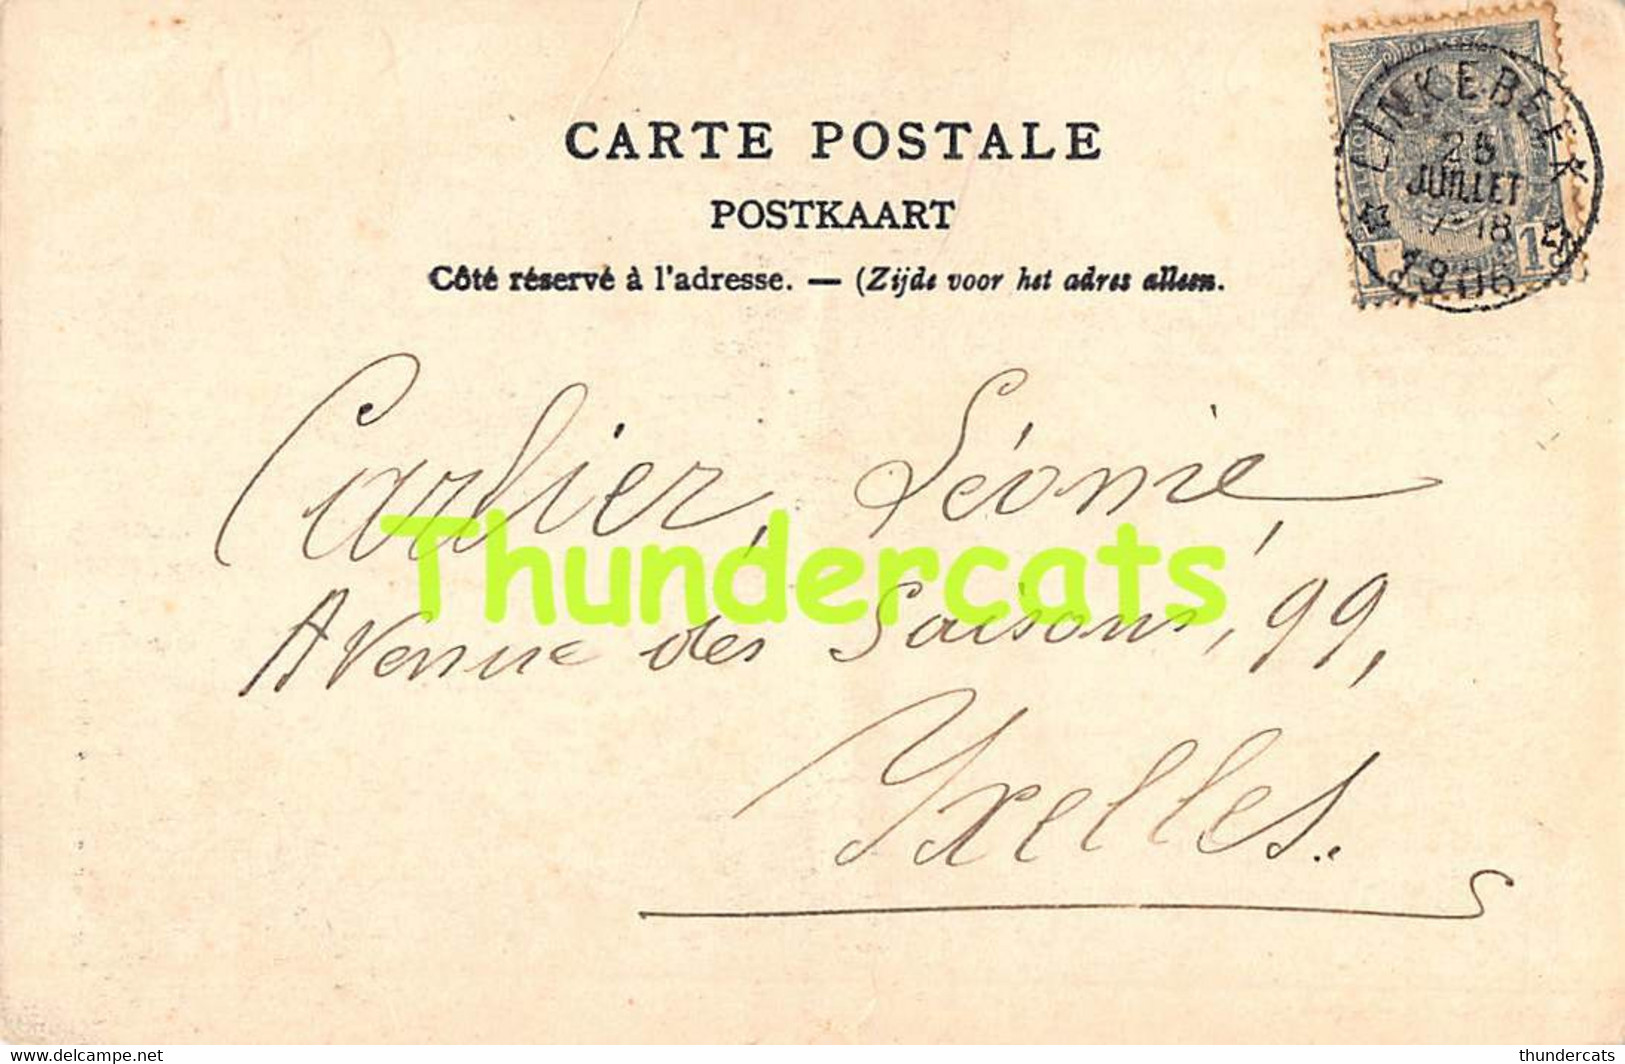 CARTE POSTALE
POSTKAART
Côté réservé à l'adresse. — (Zijde voor het adres alleen.
LINKEBEEK
25
JUILLET
17-18
1906
1
Carlier, Léonie,
Thundercats
Avenue des Saisons, 99,
Yxelles.
www.thundercats.be
thundercats